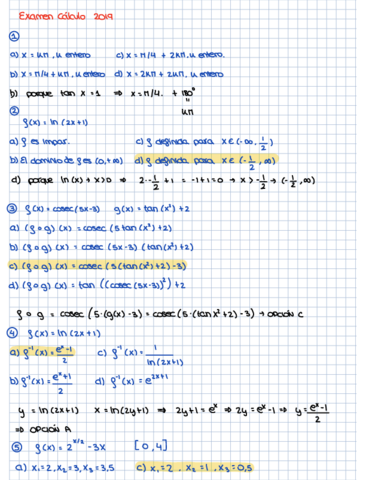 Examen Cálculo 2019
①
a) x = kπ, k entero c) x = π/4 + 2kπ, k entero.
b) x = π/4 + kπ, k entero d) x = 2kπ + 2kπ, k entero
b) porque tan x = 1 ⇒ x = π/4. + 180°
kπ
②
f(x) = ln (2x+1)
a) f es impar. c) f definida para x∈(-∞, 1/2)
b) El dominio de f es (0,+∞) d) f definida para x∈(-1/2, ∞)
d) porque ln(x) → x>0 ⇒ 2·-1/2 + 1 = -1+1=0 → x > -1/2 → (-1/2, ∞)
③ f(x) = cosec(5x-3) g(x) = tan(x²)+2
a) (f∘g)(x) = cosec (5 tan(x²)+2)
b) (f∘g)(x) = cosec (5x-3) (tan(x²)+2)
c) (f∘g)(x) = cosec (5(tan(x²)+2)-3)
d) (f∘g)(x) = tan ((cosec (5x-3))²)+2
f∘g = cosec (5·(g(x)-3) = cosec (5·(tan x²+2)-3) → opción C
④ f(x) = ln(2x+1)
a) f⁻¹(x) = (eˣ-1)/2 c) f⁻¹(x) = 1/ln(2x+1)
b) f⁻¹(x) = (eˣ+1)/2 d) f⁻¹(x) = e²ˣ⁺¹
y = ln(2x+1) x = ln(2y+1) ⇒ 2y+1 = eˣ ⇒ 2y = eˣ-1 ⇒ y = (eˣ-1)/2
⇒ OPCIÓN A
⑤ f(x) = 2^(x/2) - 3x [0,4]
a) x₁=2, x₂=3, x₃=3,5 c) x₁=2, x₂=1, x₃=0,5